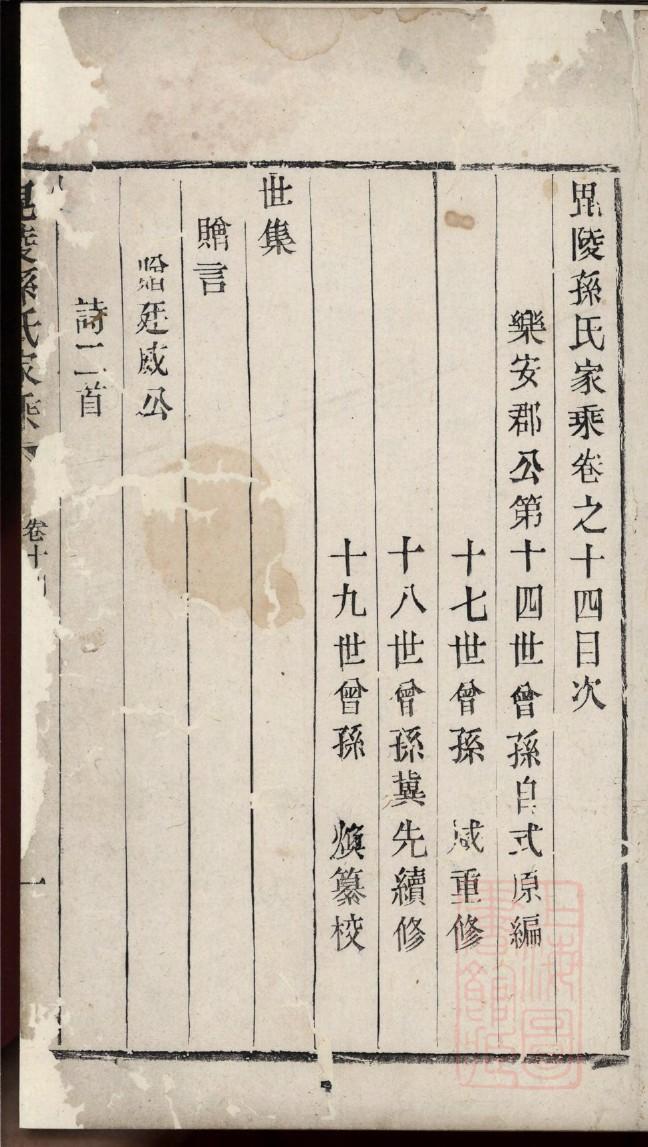 毘陵孫氏家乘卷之十四目次
樂安郡公第十四世曾孫自式原編
十七世曾孫 咸重修
十八世曾孫冀先續修
十九世曾孫 煥纂校
世集
贈言
贈廷威公
詩二首
毘陵孫氏家乘 卷十四 一
上海圖書館藏